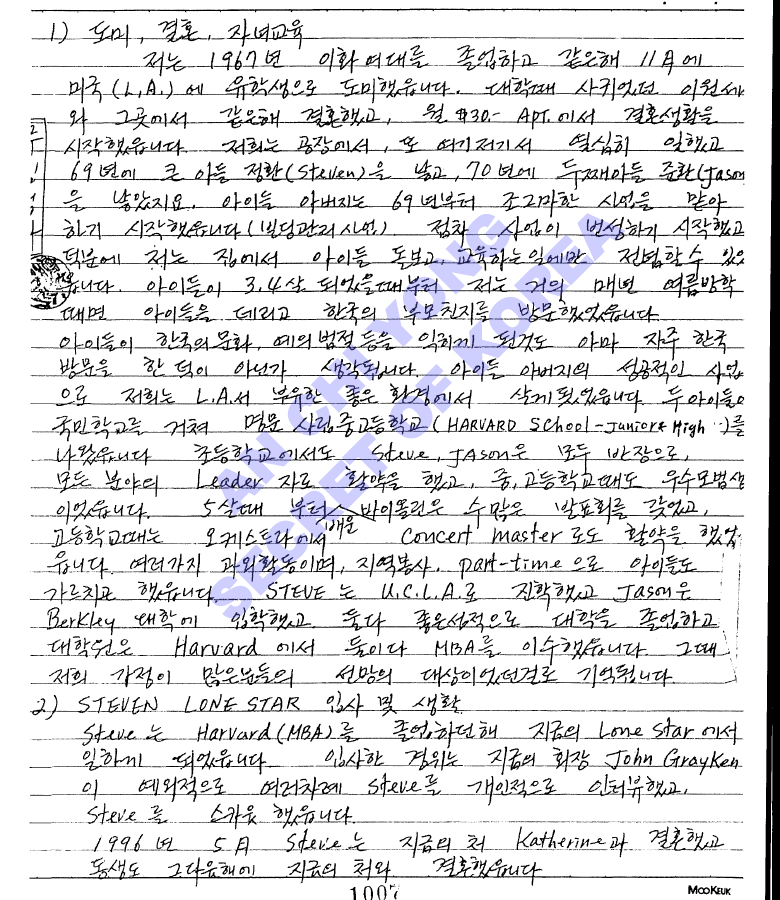 1) 도미, 결혼, 자녀교육
저는 1967년 이화여대를 졸업하고 같은해 11月에
미국(L.A.)에 유학생으로 도미했읍니다. 대학때 사귀었던 이원세
와 그곳에서 같은해 결혼했고, 월 $30.- Apt.에서 결혼생활을
시작했읍니다. 저희는 공장에서, 또 여기저기서 열심히 일했고
69년에 큰 아들 정환(Steven)을 낳고, 70년에 두째아들 준환(Jason
을 낳았지요. 아이들 아버지는 69년부터 조그마한 사업을 맡아
하기 시작했읍니다(빌딩관리사업). 점차 사업이 번성하기 시작했고
덕분에 저는 집에서 아이들 돌보고, 교육하는일에만 전념할 수 있었
읍니다. 아이들이 3.4살 되었을때부터 저는 거의 매년 여름방학
때면 아이들을 데리고 한국의 부모친지를 방문했었읍니다
아이들이 한국의문화, 예의범절등을 익히게 된것도 아마 자주 한국
방문을 한 덕이 아닌가 생각됩니다. 아이들 아버지의 성공적인 사업
으로 저희는 L.A.서 부유한 좋은 환경에서 살게되었읍니다 두아이들은
국민학교를 거쳐 명문 사립중고등학교(HARVARD School-Junior & High)를
나왔읍니다 초등학교에서도 Steve, JASon은 모두 반장으로,
모든 분야의 Leader 자로 활약을 했고, 중,고등학교때도 우수모범생
이었읍니다. 5살때 부터 배운 바이올린은 수많은 발표회를 갖었고,
고등학교때는 오케스트라에서 Concert master로도 활약을 했었
읍니다. 여러가지 과외활동이며, 지역봉사. part-time으로 아이들도
가르치고 했읍니다. STEVE는 U.C.L.A.로 진학했고 Jason은
Berkley 대학에 입학했고 둘다 좋은성적으로 대학을 졸업하고
대학원은 Harvard에서 둘이다 MBA를 이수했읍니다. 그때
저희 가정이 많은분들의 선망의 대상이었던걸로 기억됩니다.
2) STEVEN LONE STAR 입사 및 생활
Steve는 Harvard(MBA)를 졸업하던해 지금의 Lone Star에서
일하게 되었읍니다. 입사한 경위는 지금의 회장 John GrayKen
이 예외적으로 여러차례 Steve를 개인적으로 인터뷰했고,
Steve를 스카웃 했읍니다.
1996년 5月 Steve는 지금의 처 Katherine과 결혼했고
동생도 그다음해에 지금의 처와 결혼했읍니다
1007
MOOKEUK
AN CHI YONG
SECRET OF KOREA